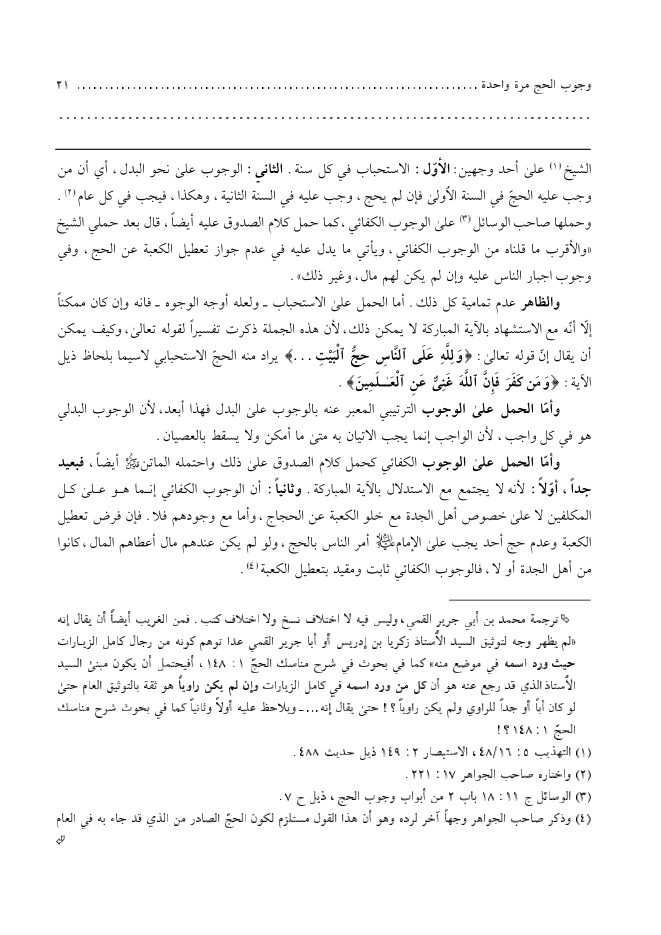 وجوب الحج مرة واحدة ........................................................................ ٢١
................................................................................
الشيخ(١) علىٰ أحد وجهين: الأوّل : الاستحباب في كل سنة . الثاني : الوجوب علىٰ نحو البدل ، أي أن من
وجب عليه الحجّ في السنة الأولىٰ فإن لم يحج ، وجب عليه في السنة الثانية ، وهكذا ، فيجب في كل عام(٢) .
وحملها صاحب الوسائل(٣) علىٰ الوجوب الكفائي ، كما حمل كلام الصدوق عليه أيضاً ، قال بعد حملي الشيخ
«والأقرب ما قلناه من الوجوب الكفائي ، ويأتي ما يدل عليه في عدم جواز تعطيل الكعبة عن الحج ، وفي
وجوب اجبار الناس عليه وإن لم يكن لهم مال، وغير ذلك» .
والظاهر عدم تمامية كل ذلك . أما الحمل علىٰ الاستحباب ـ ولعله أوجه الوجوه ـ فانه وإن كان ممكناً
إلّا أنّه مع الاستشهاد بالآية المباركة لا يمكن ذلك، لأن هذه الجملة ذكرت تفسيراً لقوله تعالىٰ، وكيف يمكن
أن يقال إنّ قوله تعالىٰ : ﴿وَلِلَّهِ عَلَى ٱلنَّاسِ حِجُّ ٱلْبَيْتِ . . .﴾ يراد منه الحجّ الاستحبابي لاسيما بلحاظ ذيل
الآية : ﴿وَمَن كَفَرَ فَإِنَّ ٱللَّهَ غَنِىٌّ عَنِ ٱلْعَـٰلَمِينَ﴾ .
وأمّا الحمل علىٰ الوجوب الترتيبي المعبر عنه بالوجوب علىٰ البدل فهذا أبعد، لأن الوجوب البدلي
هو في كل واجب ، لأن الواجب إنما يجب الاتيان به متىٰ ما أمكن ولا يسقط بالعصيان .
وأمّا الحمل علىٰ الوجوب الكفائي كحمل كلام الصدوق علىٰ ذلك واحتمله الماتنﷺ أيضاً ، فبعيد
جداً ، أوّلاً : لأنه لا يجتمع مع الاستدلال بالآية المباركة . وثانياً : أن الوجوب الكفائي إنـما هـو عـلىٰ كـل
المكلفين لا علىٰ خصوص أهل الجدة مع خلو الكعبة عن الحجاج ، وأما مع وجودهم فلا . فإن فرض تعطيل
الكعبة وعدم حج أحد يجب علىٰ الإمامﷺ أمر الناس بالحج ، ولو لم يكن عندهم مال أعطاهم المال، كانوا
من أهل الجدة أو لا ، فالوجوب الكفائي ثابت ومقيد بتعطيل الكعبة(٤) .
ترجمة محمد بن أبي جرير القمي ، وليس فيه لا اختلاف نسخ ولا اختلاف كتب . فمن الغريب أيضاً أن يقال إنه
«لم يظهر وجه لتوثيق السيد الأستاذ زكريا بن إدريس أو أبا جرير القمي عدا توهم كونه من رجال كامل الزيـارات
حيث ورد اسمه في موضع منه» كما في بحوث في شرح مناسك الحجّ ١ : ١٤٨ ، أفيحتمل أن يكون مبنىٰ السيد
الأستاذ الذي قد رجع عنه هو أن كل من ورد اسمه في كامل الزيارات وإن لم يكن راوياً هو ثقة بالتوثيق العام حتىٰ
لو كان أباً أو جداً للراوي ولم يكن راوياً ؟ ! حتىٰ يقال إنه . . . ـ ويلاحظ عليه أولاً وثانياً كما في بحوث شرح مناسك
الحجّ ١ : ١٤٨ ؟ !
(١) التهذيب ٥ : ٤٨/١٦ ، الاستبصار ٢ : ١٤٩ ذيل حديث ٤٨٨ .
(٢) واختاره صاحب الجواهر ١٧ : ٢٢١ .
(٣) الوسائل ج ١١ : ١٨ باب ٢ من أبواب وجوب الحج ، ذيل ح ٧ .
(٤) وذكر صاحب الجواهر وجهاً آخر لرده وهو أن هذا القول مستلزم لكون الحجّ الصادر من الذي قد جاء به في العام